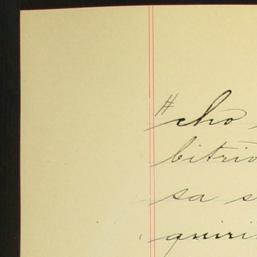 "cho
bitrio
sa s
quiri